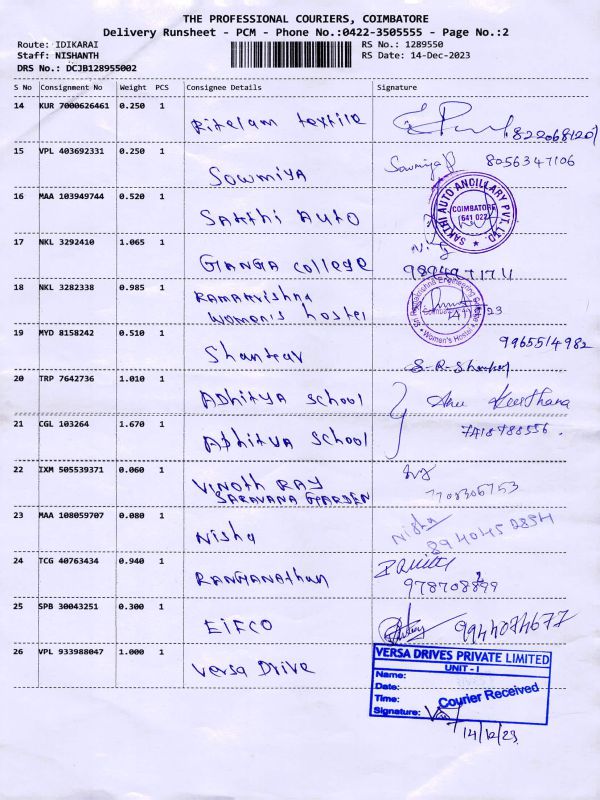 THE PROFESSIONAL COURIERS, COIMBATORE
Delivery Runsheet - PCM - Phone No.:0422-3505555 - Page No.:2
Route: IDIKARAI
RS No.: 1289550
Staff: NISHANTH
RS Date: 14-Dec-2023
DRS No.: DCJB128955002
S No Consignment No Weight PCS Consignee Details Signature
14 KUR 7000626461 0.250 1 Ritelam textile
15 VPL 403692331 0.250 1 SOWMIYA Sowmiya 8056347106
16 MAA 103949744 0.520 1 SAKTHI AUTO
SAKTHI AUTO ANCILLARY PVT. LTD.
COIMBATORE
641 022
17 NKL 3292410 1.065 1 GANGA College
18 NKL 3282338 0.985 1 RAMAKrishna
Women's hostel
Women's Hostel
19 MYD 8158242 0.510 1 Shankar 9965514982
20 TRP 7642736 1.010 1 ADhitYA School Keerthana
21 CGL 103264 1.670 1 ADhitYA School 7418788556.
22 IXM 505539371 0.060 1 VINOTH RAY
SARAVANA GARDEN 7708306753
23 MAA 108059707 0.080 1 Nisha Nisha
24 TCG 40763434 0.940 1 RANGANAthan
25 SPB 30043251 0.300 1 EIFCO 9944074677
26 VPL 933988047 1.000 1 Versa Drive
VERSA DRIVES PRIVATE LIMITED
UNIT - I
Name:
Date:
Time:
Courier Received
Signature:
14/12/23